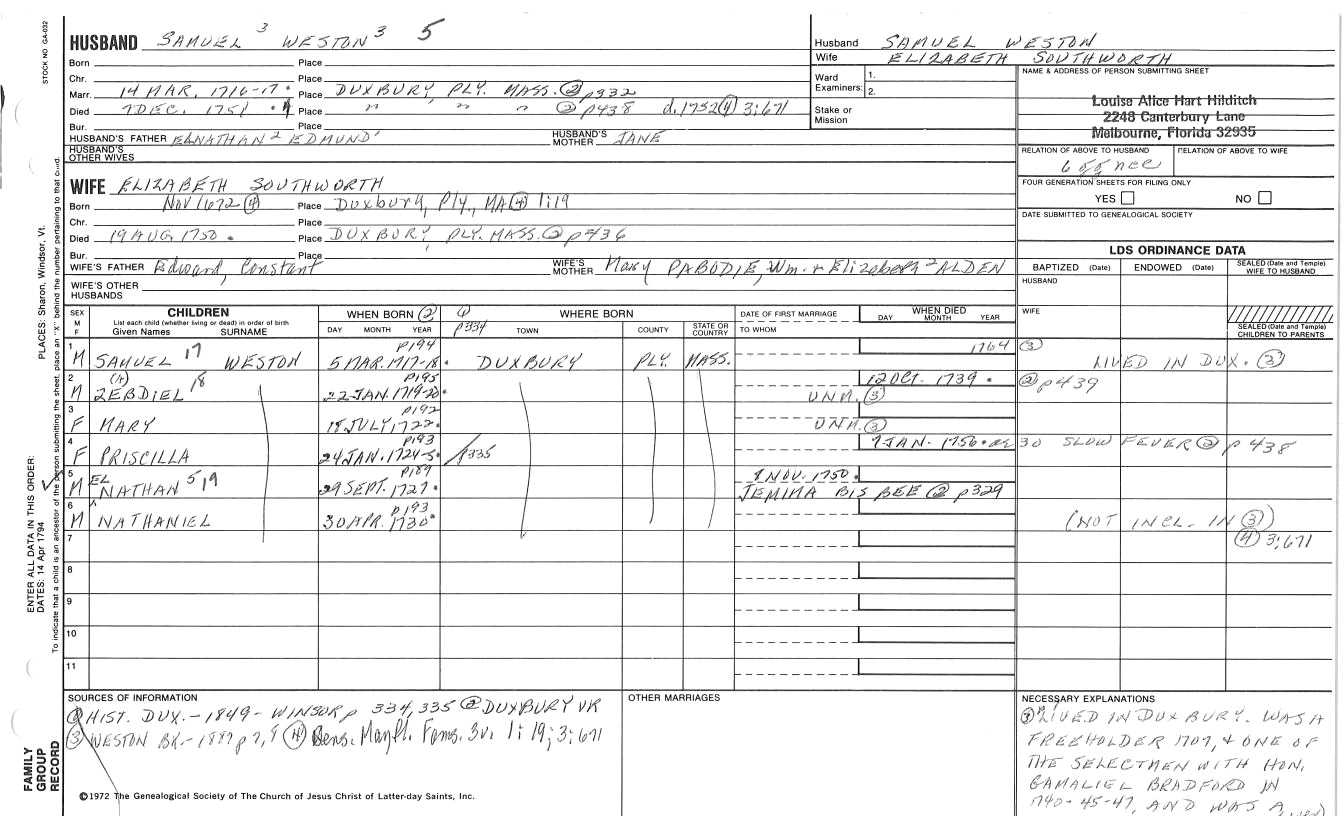 STOCK NO GA-032
HUSBAND SAMUEL 3 WESTON 3 5
Born Place
Chr. Place
Marr. 14 MAR. 1716-17. Place DUXBURY, PLY. MASS. ② p332
Died 7 DEC. 1751 Place " " " ② p438 d. 1752 ④ 3:671
Bur. Place
HUSBAND'S FATHER ELNATHAN 2 EDMUND' HUSBAND'S MOTHER JANE
HUSBAND'S OTHER WIVES
WIFE ELIZABETH SOUTHWORTH
Born Nov 1672 ④ Place Duxbury, Ply., MA ④ 1:19
Chr. Place
Died 19 AUG 1750. Place DUXBURY PLY. MASS. ② p436
Bur. Place
WIFE'S FATHER Edward, Constant WIFE'S MOTHER Mary PABODIE, Wm. + Elizabeth 2 ALDEN
WIFE'S OTHER HUSBANDS
Husband SAMUEL WESTON
Wife ELIZABETH SOUTHWORTH
Ward Examiners: 1. 2.
Stake or Mission
NAME & ADDRESS OF PERSON SUBMITTING SHEET
Louise Alice Hart Hilditch
2248 Canterbury Lane
Melbourne, Florida 32935
RELATION OF ABOVE TO HUSBAND RELATION OF ABOVE TO WIFE
FOUR GENERATION SHEETS FOR FILING ONLY
YES NO
DATE SUBMITTED TO GENEALOGICAL SOCIETY
LDS ORDINANCE DATA
BAPTIZED (Date) ENDOWED (Date) SEALED (Date and Temple) WIFE TO HUSBAND
HUSBAND
WIFE
SEALED (Date and Temple) CHILDREN TO PARENTS
SEX M F CHILDREN List each child (whether living or dead) in order of birth Given Names SURNAME
WHEN BORN ② DAY MONTH YEAR p334 WHERE BORN TOWN COUNTY STATE OR COUNTRY
DATE OF FIRST MARRIAGE TO WHOM WHEN DIED DAY MONTH YEAR
1 M SAMUEL 17 WESTON p194 5 MAR. 1717-18. DUXBURY PLY. MASS. 1764 ③ LIVED IN DUX. ③
2 M ZEBDIEL 18 p195 22 JAN. 1719-20. UNM. ③ 12 OCT. 1739. ② p439
3 F MARY p192 18 JULY, 1722. UNM. ③
4 F PRISCILLA p193 24 JAN. 1724-5. p335 7 JAN. 1756. ae 30 SLOW FEVER ② p 438
5 M EL NATHAN 5 19 p189 29 SEPT. 1727. 8 NOV. 1750. JEMIMA BISBEE ② p329
6 M NATHANIEL p193 30 APR. 1730. (NOT INCL. IN ③) ④ 3:671
7
8
9
10
11
SOURCES OF INFORMATION
① HIST. DUX. - 1849 - WINSOR p 334, 335 ② DUXBURY VR
③ WESTON BK - 1887 p 7, 9 ④ Gens. Mayfl. Fams. 3v. 1:19; 3:671
OTHER MARRIAGES
NECESSARY EXPLANATIONS
LIVED IN DUXBURY. WAS A
FREEHOLDER 1707, & ONE OF
THE SELECTMEN WITH HON.
GAMALIEL BRADFORD IN
1740-45-47, AND WAS A
FAMILY GROUP RECORD
©1972 The Genealogical Society of The Church of Jesus Christ of Latter-day Saints, Inc.
ENTER ALL DATA IN THIS ORDER:
DATES: 14 Apr 1794
PLACES: Sharon, Windsor, Vt.
To indicate that a child is an ancestor of the person submitting the sheet, place an "X" behind the number pertaining to that child.